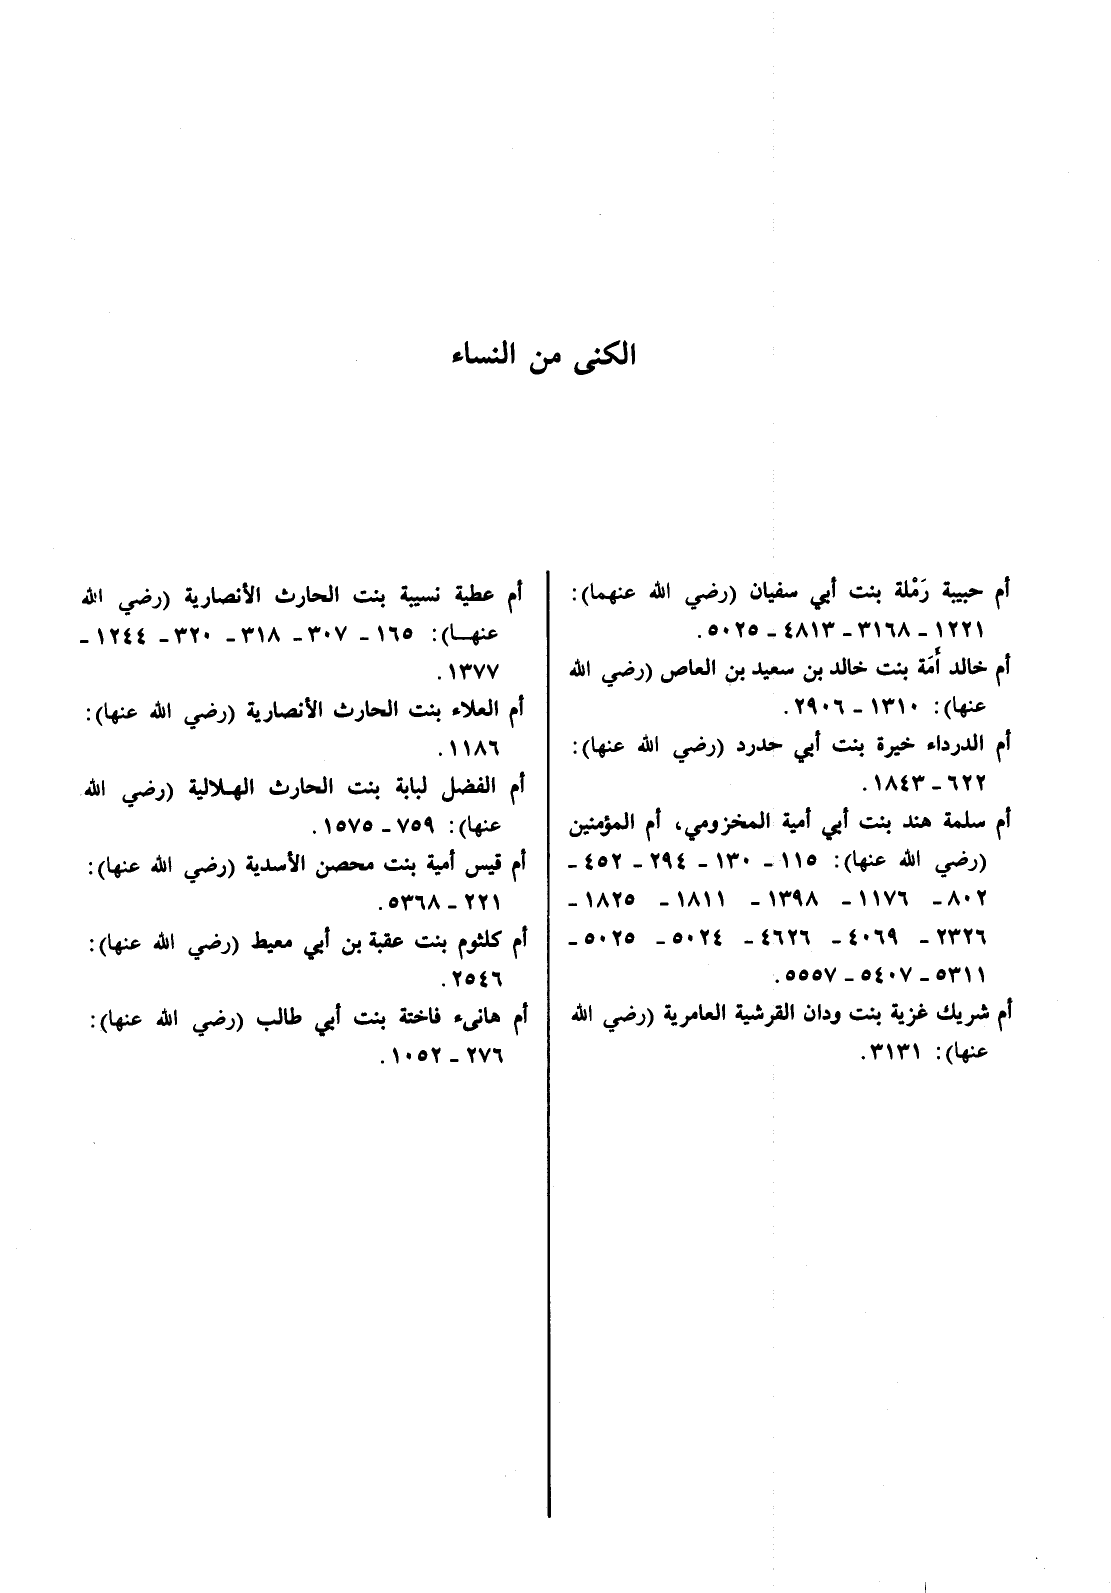 الكنى من النساء
أم حبيبة رَمْلة بنت أبي سفيان (رضي الله عنهما):
١٢٢١ - ٣١٦٨ - ٤٨١٣ - ٥٠٢٥.
أم خالد أَمَة بنت خالد بن سعيد بن العاص (رضي الله
عنها): ١٣١٠ - ٢٩٠٦.
أم الدرداء خيرة بنت أبي حدرد (رضي الله عنها):
٦٢٢ - ١٨٤٣.
أم سلمة هند بنت أبي أمية المخزومي، أم المؤمنين
(رضي الله عنها): ١١٥ - ١٣٠ - ٢٩٤ - ٤٥٢ -
٨٠٢ - ١١٧٦ - ١٣٩٨ - ١٨١١ - ١٨٢٥ -
٢٣٢٦ - ٤٠٦٩ - ٤٦٢٦ - ٥٠٢٤ - ٥٠٢٥ -
٥٣١١ - ٥٤٠٧ - ٥٥٥٧.
أم شريك غزية بنت ودان القرشية العامرية (رضي الله
عنها): ٣١٣١.
أم عطية نسيبة بنت الحارث الأنصارية (رضي الله
عنهـا): ١٦٥ - ٣٠٧ - ٣١٨ - ٣٢٠ - ١٢٤٤ -
١٣٧٧.
أم العلاء بنت الحارث الأنصارية (رضي الله عنها):
١١٨٦.
أم الفضل لبابة بنت الحارث الهلالية (رضي الله
عنها): ٧٥٩ - ١٥٧٥.
أم قيس أمية بنت محصن الأسدية (رضي الله عنها):
٢٢١ - ٥٣٦٨.
أم كلثوم بنت عقبة بن أبي معيط (رضي الله عنها):
٢٥٤٦.
أم هانىء فاختة بنت أبي طالب (رضي الله عنها):
٢٧٦ - ١٠٥٢.